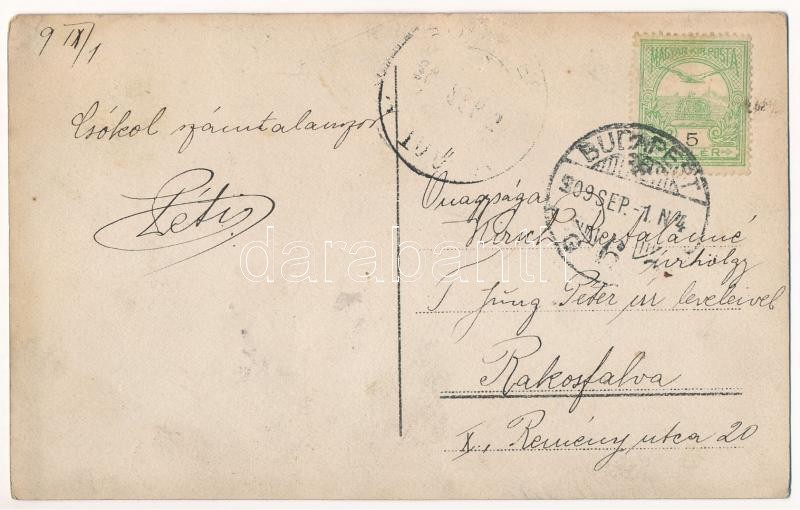 9 IX/1
Csókol számtalanszor
Péti
MAGYAR KIR. POSTA
5
BUDAPEST
909 SEP.-1. N/4
SEP 2
Nagysága
Hirsch Bertalanné
úrhölgy
Jung Péter úr leveleivel
Rákosfalva
X., Remény utca 20
darabanth